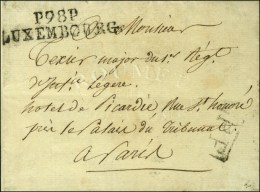 P98P
LUXEMBOURG
Monsieur
Texier major du 1er Régt
d'Infie Légère
hotel de Picardie Rue St honoré
près le Palais du Tribunat
a Paris